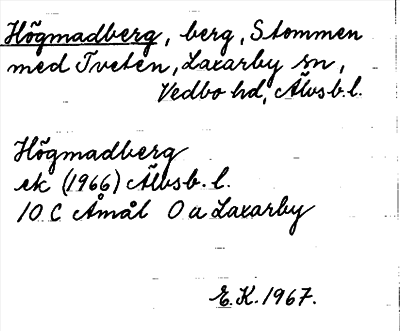 Högmadberg, berg, Stommen
med Tveten, Laxarby sn,
Vedbo hd, Älvsb. l.
Högmadberg
ek (1966) Älvsb. l.
10 C Åmål 0 a Laxarby
E.K. 1967.